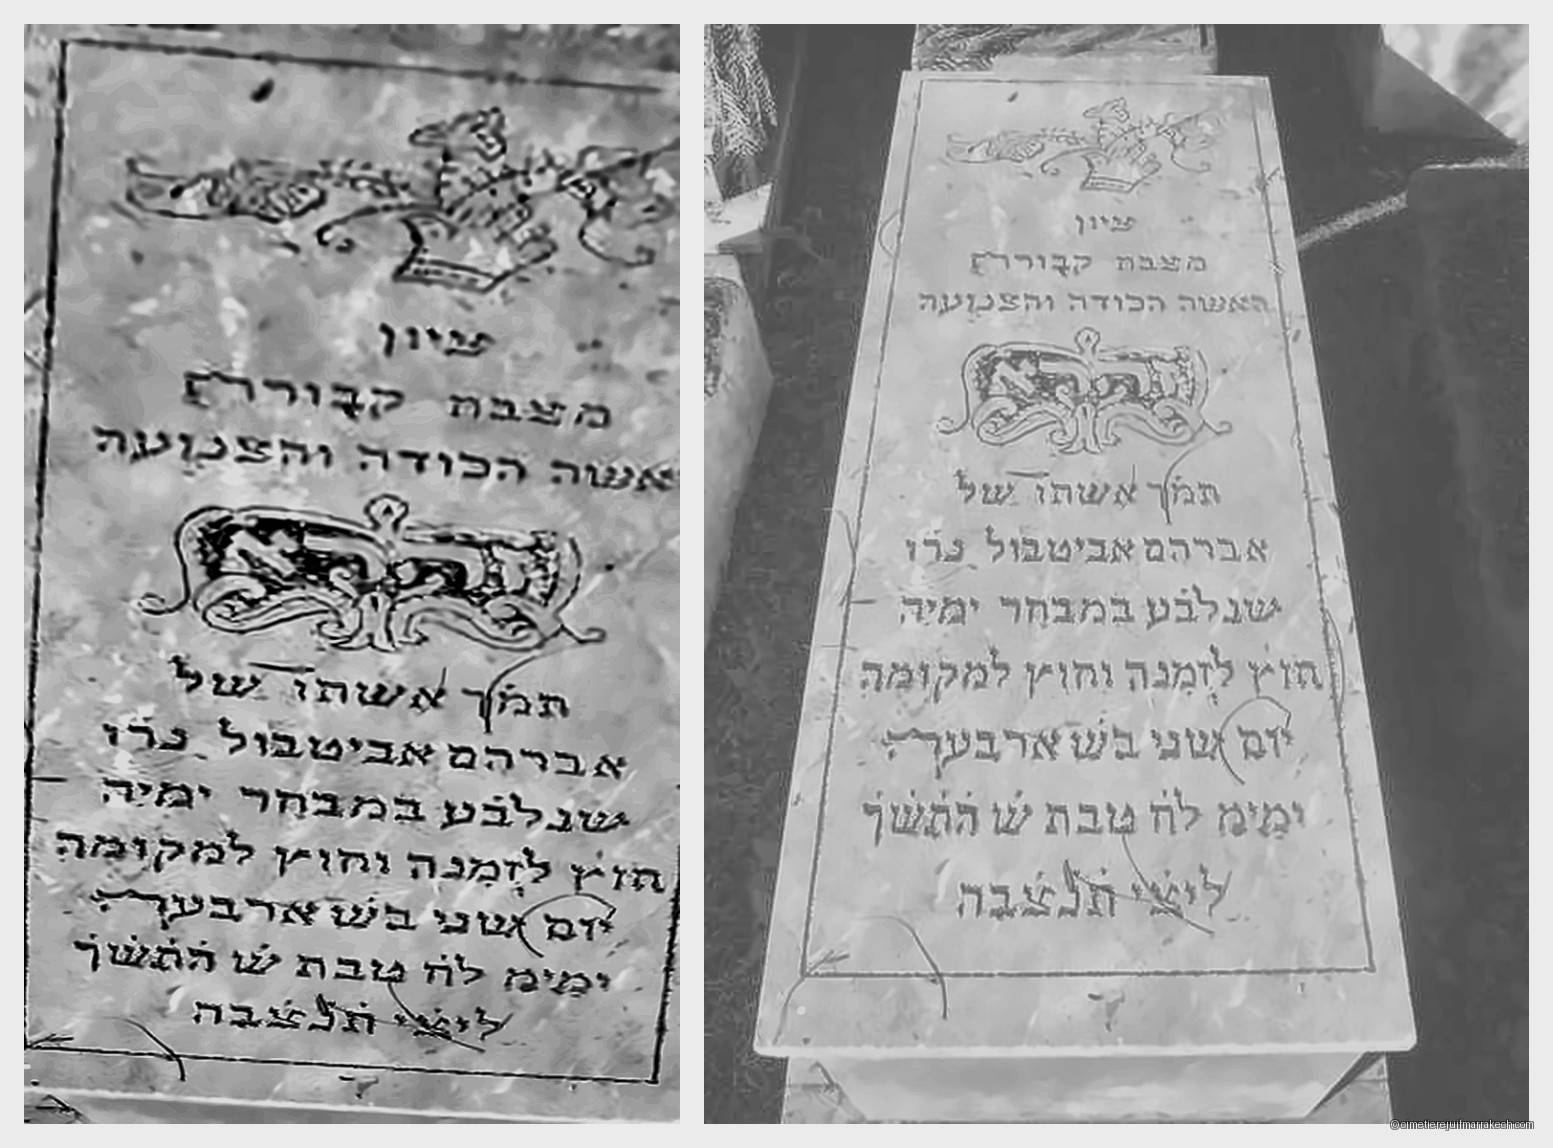 ציון
מצבת קבורת
האשה הכודה והצנועה
זהרא
תמ׳ך אשתו של
אברהם אביטבול נר׳ו
שנלב׳ע במבחר ימיה
חוץ לזמנה וחוץ למקומה
יום שני בש ארבעה
ימימ לח׳ טבת ש׳ התשך
ליצי׳ תנצבה
ציון
מצבת קבורת
האשה הכודה והצנועה
זהרא
תמ׳ך אשתו של
אברהם אביטבול נר׳ו
שנלב׳ע במבחר ימיה
חוץ לזמנה וחוץ למקומה
יום שני בש ארבעה
ימימ לח׳ טבת ש׳ התשך
ליצי׳ תנצבה
©cimetierejuifmarrakech.com